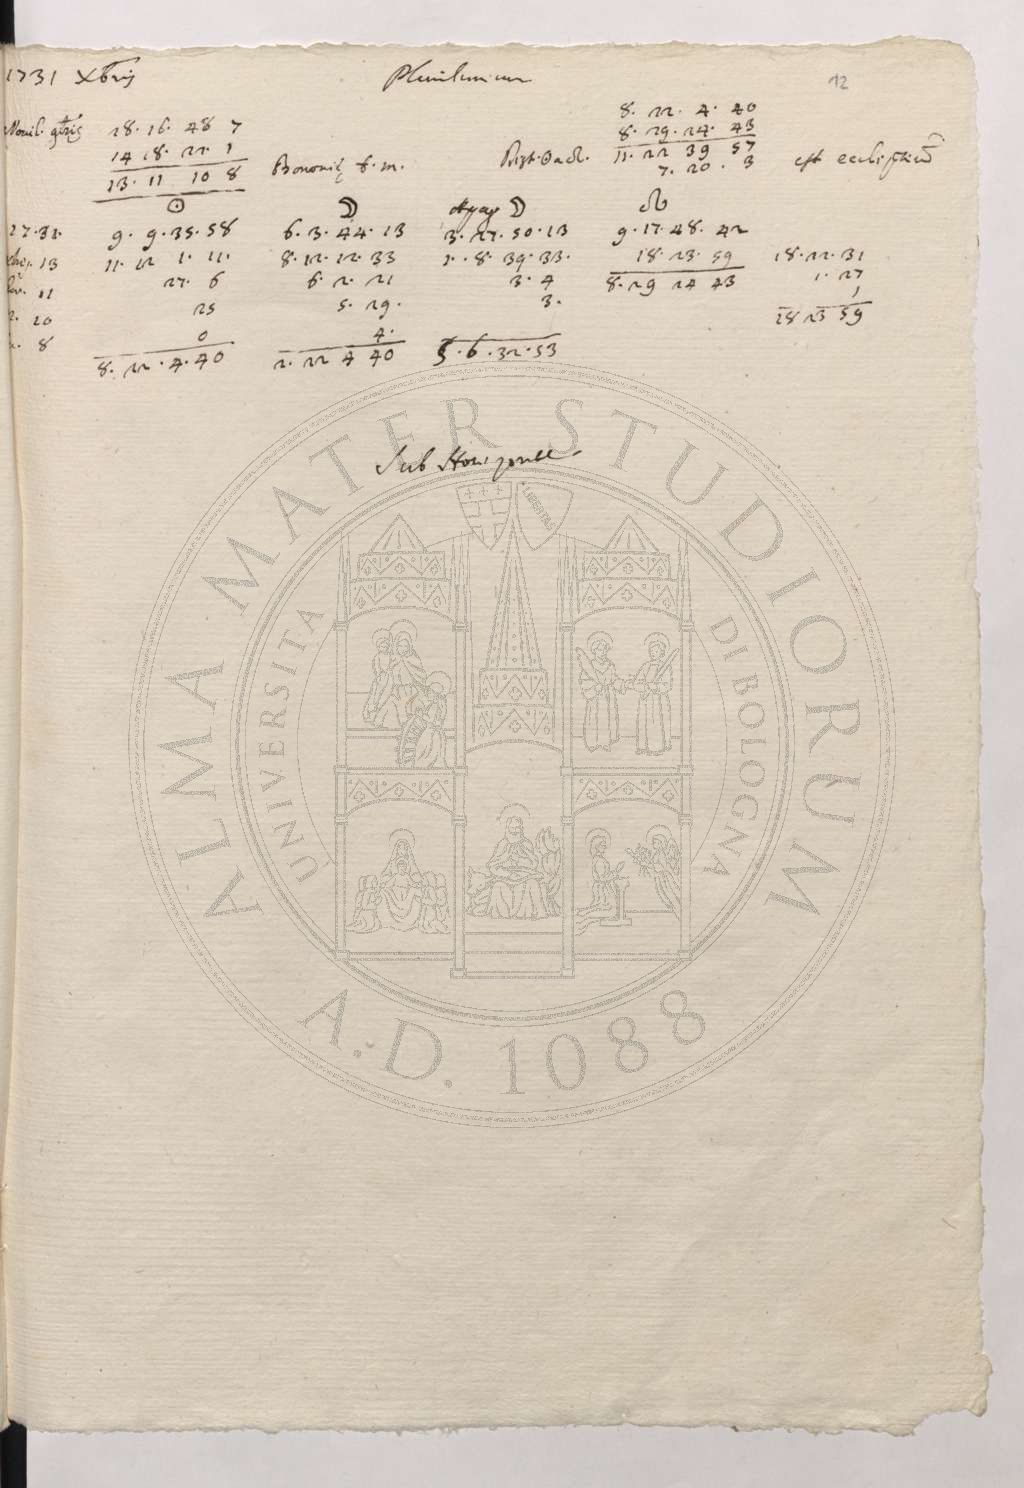 1731 Xbris Plenilunium 12
8. 22. 4. 40
28. 16. 48 7
8. 29. 24. 43
14 18. 22. 1 Bononię t. m. Dist. ☉ a ☊. 11. 22 39 57 est eccliptica
13. 11 10 8 7. 20. 3
☉ ☽ Apog ☽ ☊
1731. 9. 9. 35. 58 6. 3. 44. 13 3. 27. 50. 13 9. 17. 48. 42
13 11. 12 1. 11. 8. 12. 12. 33 1. 8. 39. 33. 18. 23. 59 18. 22. 31
11 27. 6 6. 2. 21 3. 4 8. 29 24 43 1. 27
20 25 5. 29. 3. 1
8 0 4. 18 23 59
8. 22. 4. 40 2. 22 4 40 5. 6. 32. 53
Sub Horizonte
ALMA MATER STUDIORUM
UNIVERSITA DI BOLOGNA
LIBERTAS
A.D. 1088